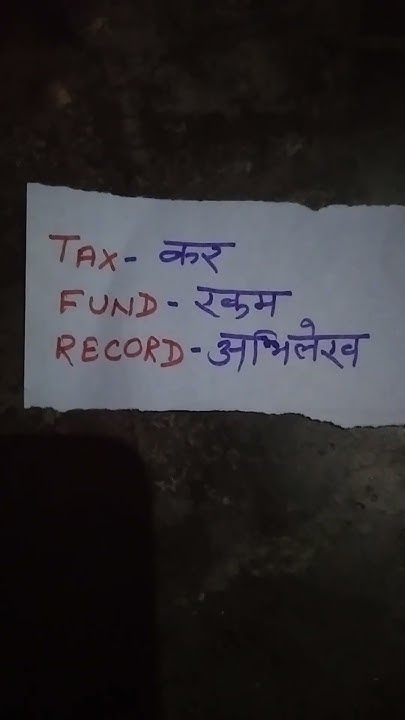 TAX- कर
FUND - रकम
RECORD - अभिलेख